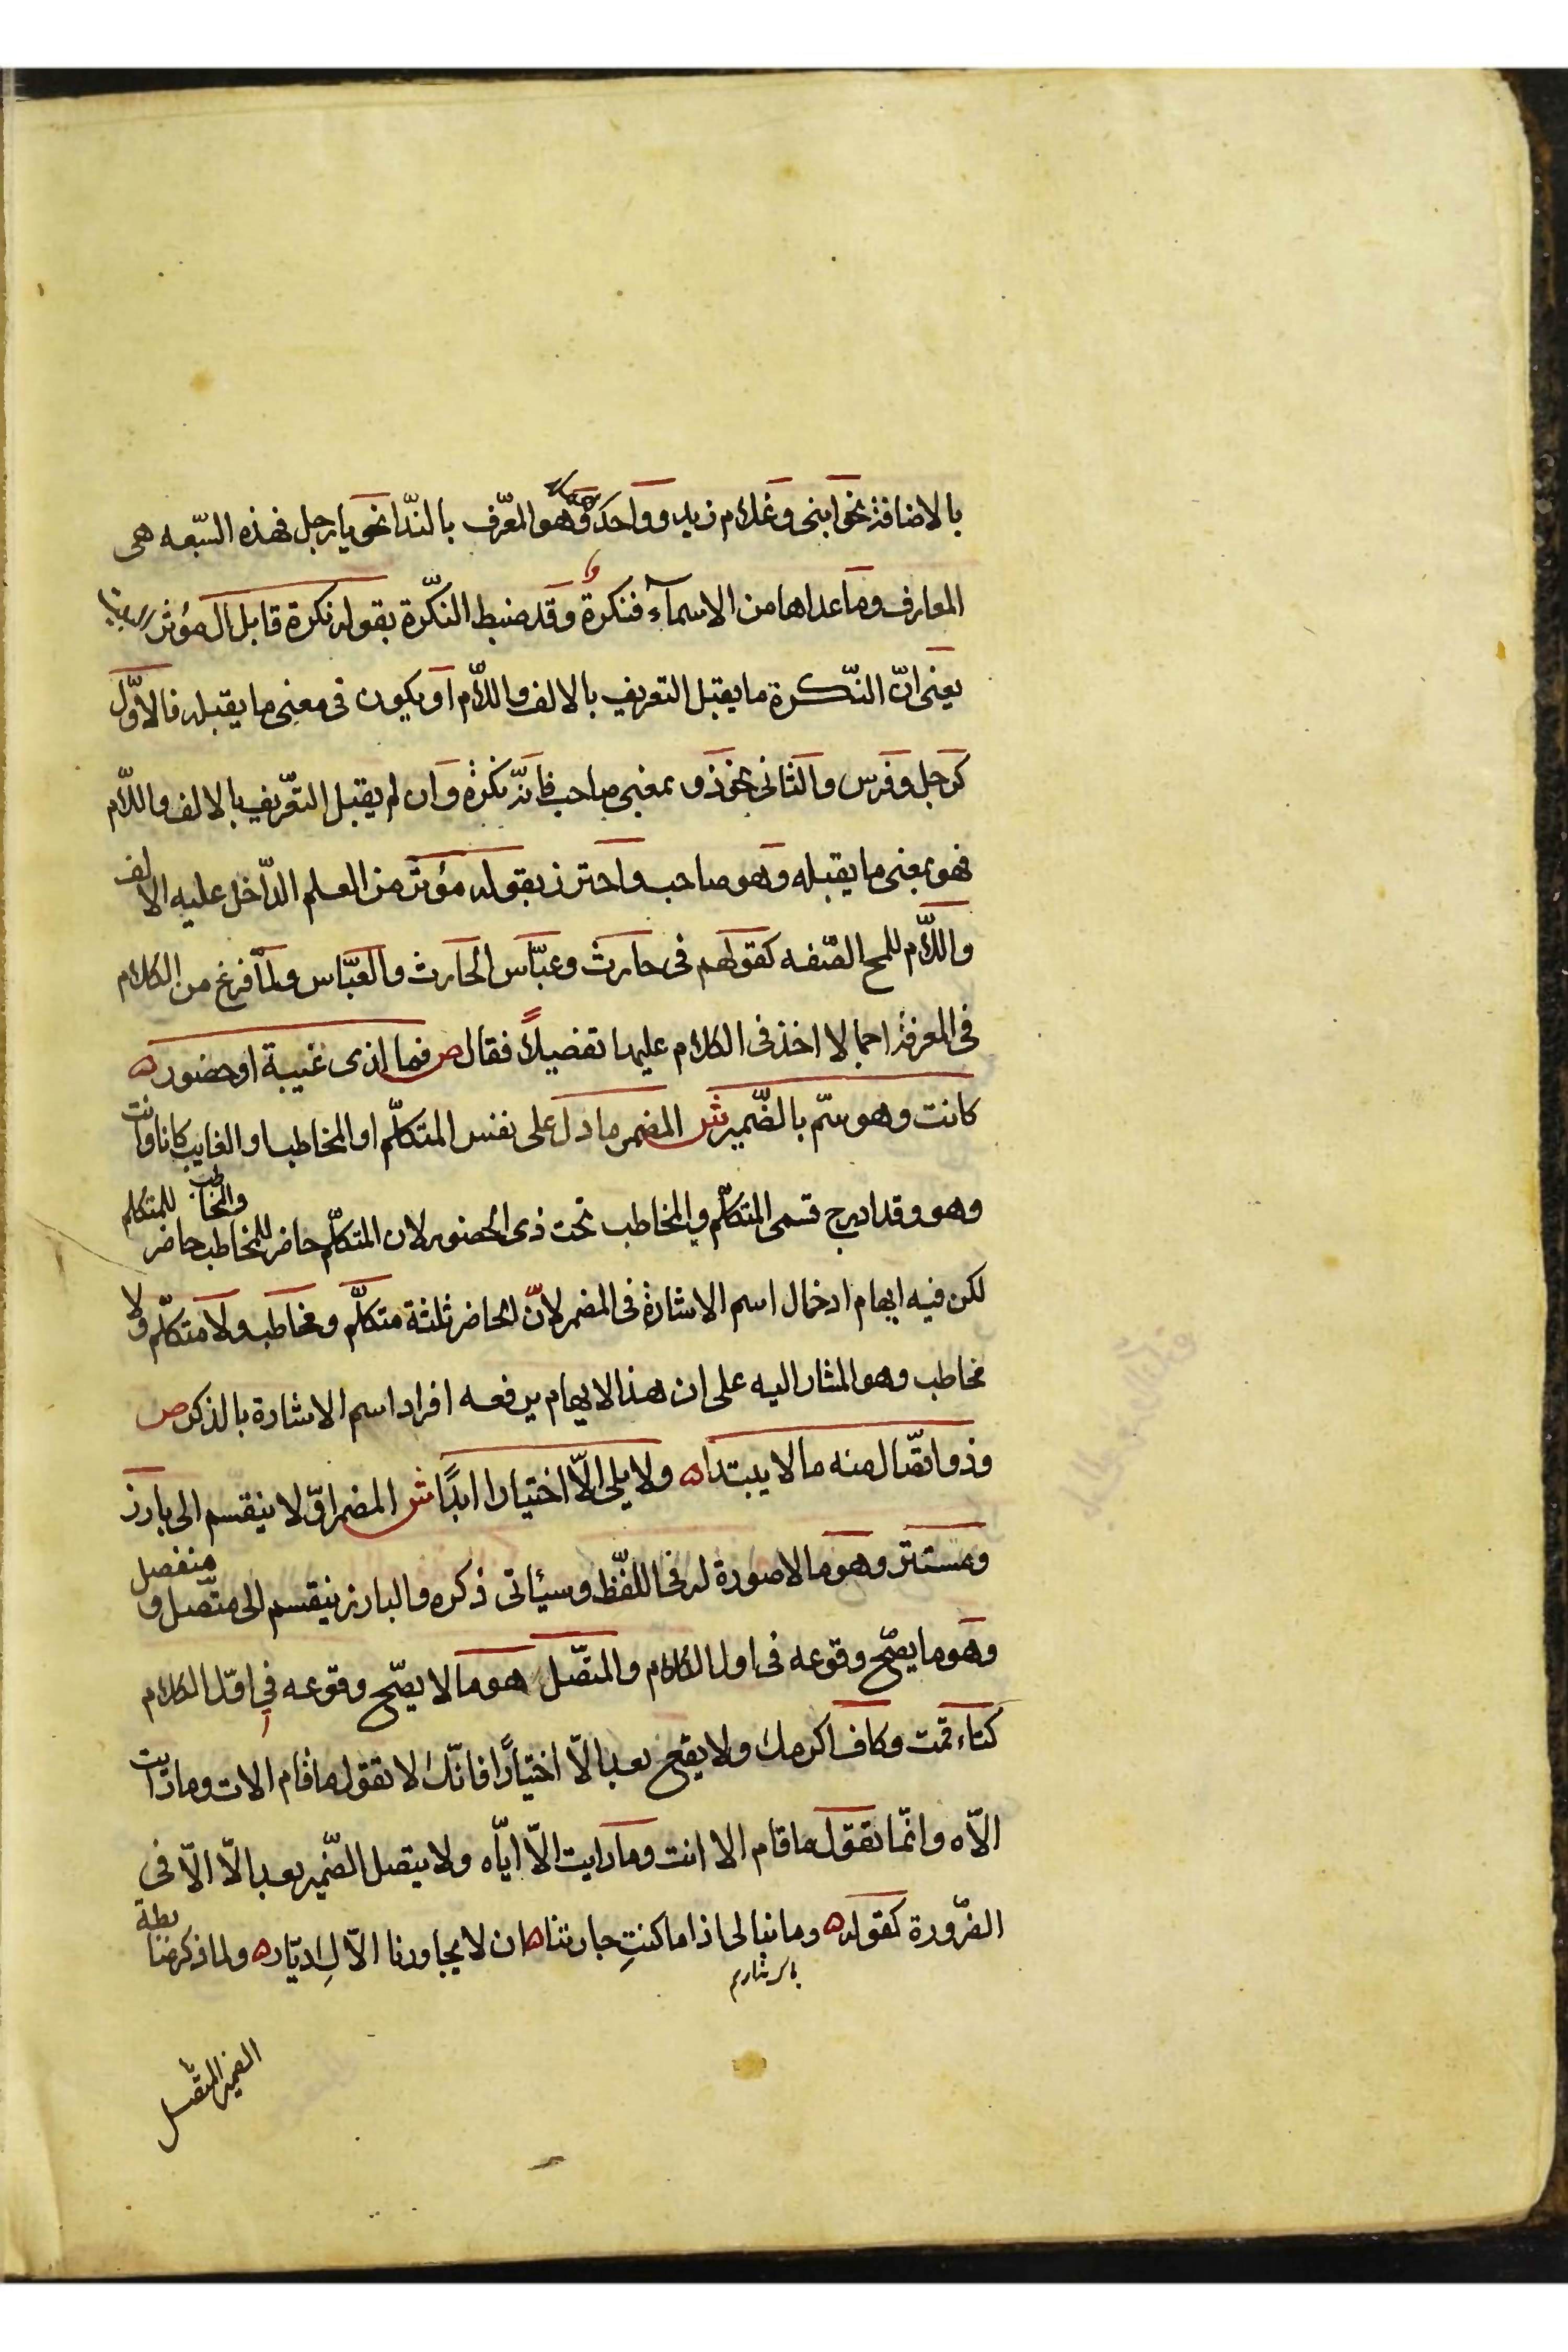 بالاضافة نحو ابنى وغلام زيد وواحد وهو المعرّف بالندّا نحو يا رجل فهذه السّبعه هى
المعارف وما عداها من الاسمآء فنكرة وقد ضبط النكّرة بقوله نكرة قابل ال مؤثرا
يعنى انّ النّكرة ما يقبل التعريف بالالف واللاّم او يكون فى معنى ما يقبله فالاوّل
كرجل وفرس والثانى نحو ذو بمعنى صاحب فانّه نكرة وان لم يقبل التعّريف بالالف واللاّم
فهو بمعنى ما يقبله وهو صاحب واحترز بقوله مؤثرا من العلم الدّاخل عليه الالف
واللاّم للمح الصّفه كقولهم فى حارث وعبّاس الحارث والعبّاس ولمّا فرغ من الكلام
فى المعرفة اجمالا اخذ فى الكلام عليها تفصيلاً فقال ص فما لذى غيبة او حضور ه
كانت وهو سمّ بالضّمير ش المضمر ما دل على نفس المتكلّم او المخاطب او الغايب كانا وانت
وهو وقد ادرج قسمى المتكلّم والمخاطب تحت ذى الحضور لان المتكلّم حاضر للمخاطب والمخاطب حاضر للمتكلم
لكن فيه ايهام ادخال اسم الاشارة فى المضمر لانّ الحاضر ثلثة متكلّم ومخاطب ولا متكلّم ولا
مخاطب وهو المشار اليه على ان هذا الايهام يرفعه افراد اسم الاشارة بالذكر ص
وذو اتصّال منه ما لا يبتدا ه ولا يلى الاّ اختيارا ابدًا ش المضمر اوّلا ينقسم الى بارز
ومستتر وهو ما لا صورة له فى اللفّظ وسيئاتى ذكره والبارز ينقسم الى متّصل ومنفصل
وهو ما يصّح وقوعه فى اول الكلام والمتصّل هو ما لا يصّح وقوعه فى اوّل الكلام
كتاء قمت وكاف اكرمك ولا يقع بعد الاّ اختيارًا فانّك لا تقول ما قام الات وما رايت
الاّه وانمّا تقول ما قام الا انت وما رايت الاّ ايّاه ولا يتصل الضّمير بعد الاّ الاّ فى
الضّرورة كقوله ه وما نبالى اذا ما كنتِ جارتنا ه ان لا يجاورنا الاّكِ ديّار ه ولما ذكر ضابطة
باك نداريم
الضمير المتصل